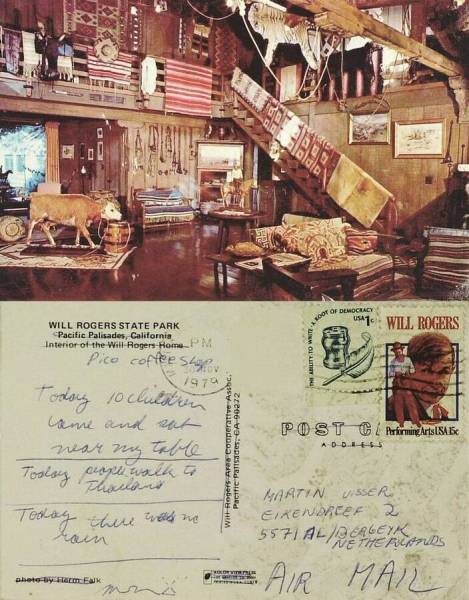 WILL ROGERS STATE PARK
Pacific Palisades, California
Interior of the Will Rogers Home
Pico coffee shop
PM
NOV
1979
Today 10 children
came and sat
near my table
Today people walk to
Thailand
Today there was no
rain
photo by Herm Falk
Will Rogers Area Cooperative Assoc.
Pacific Palisades, CA 90272
KOLOR VIEW PRESS
THE ABILITY TO WRITE · A ROOT OF DEMOCRACY
USA 1c
WILL ROGERS
Performing Arts USA 15c
POST C
ADDRESS
MARTIN VISSER
EIKENDREEF 2
5571 AL/BERGEYK
NETHERLANDS
AIR MAIL